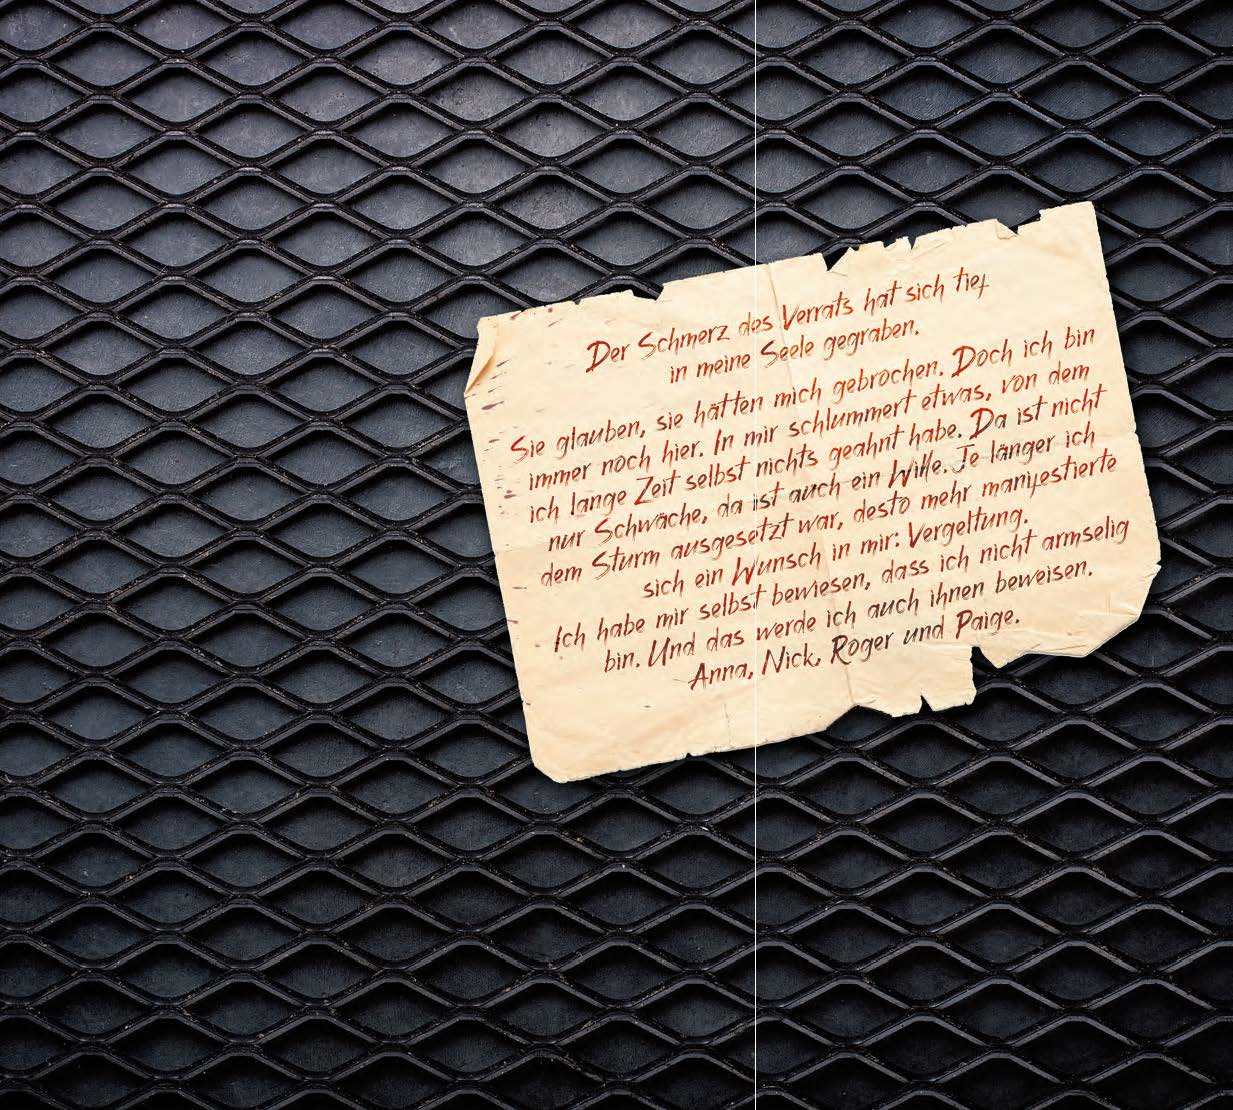 Der Schmerz des Verrats hat sich tief
in meine Seele gegraben.
Sie glauben, sie hätten mich gebrochen. Doch ich bin
immer noch hier. In mir schlummert etwas, von dem
ich lange Zeit selbst nichts geahnt habe. Da ist nicht
nur Schwäche, da ist auch ein Wille. Je länger ich
dem Sturm ausgesetzt war, desto mehr manifestierte
sich ein Wunsch in mir: Vergeltung.
Ich habe mir selbst bewiesen, dass ich nicht armselig
bin. Und das werde ich auch ihnen beweisen.
Anna, Nick, Roger und Paige.